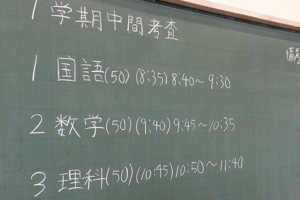 1学期中間考査
備考
1 国語(50) (8:35) 8:40～ 9:30
2 数学(50) (9:40) 9:45～10:35
3 理科(50) (10:45) 10:50～11:40